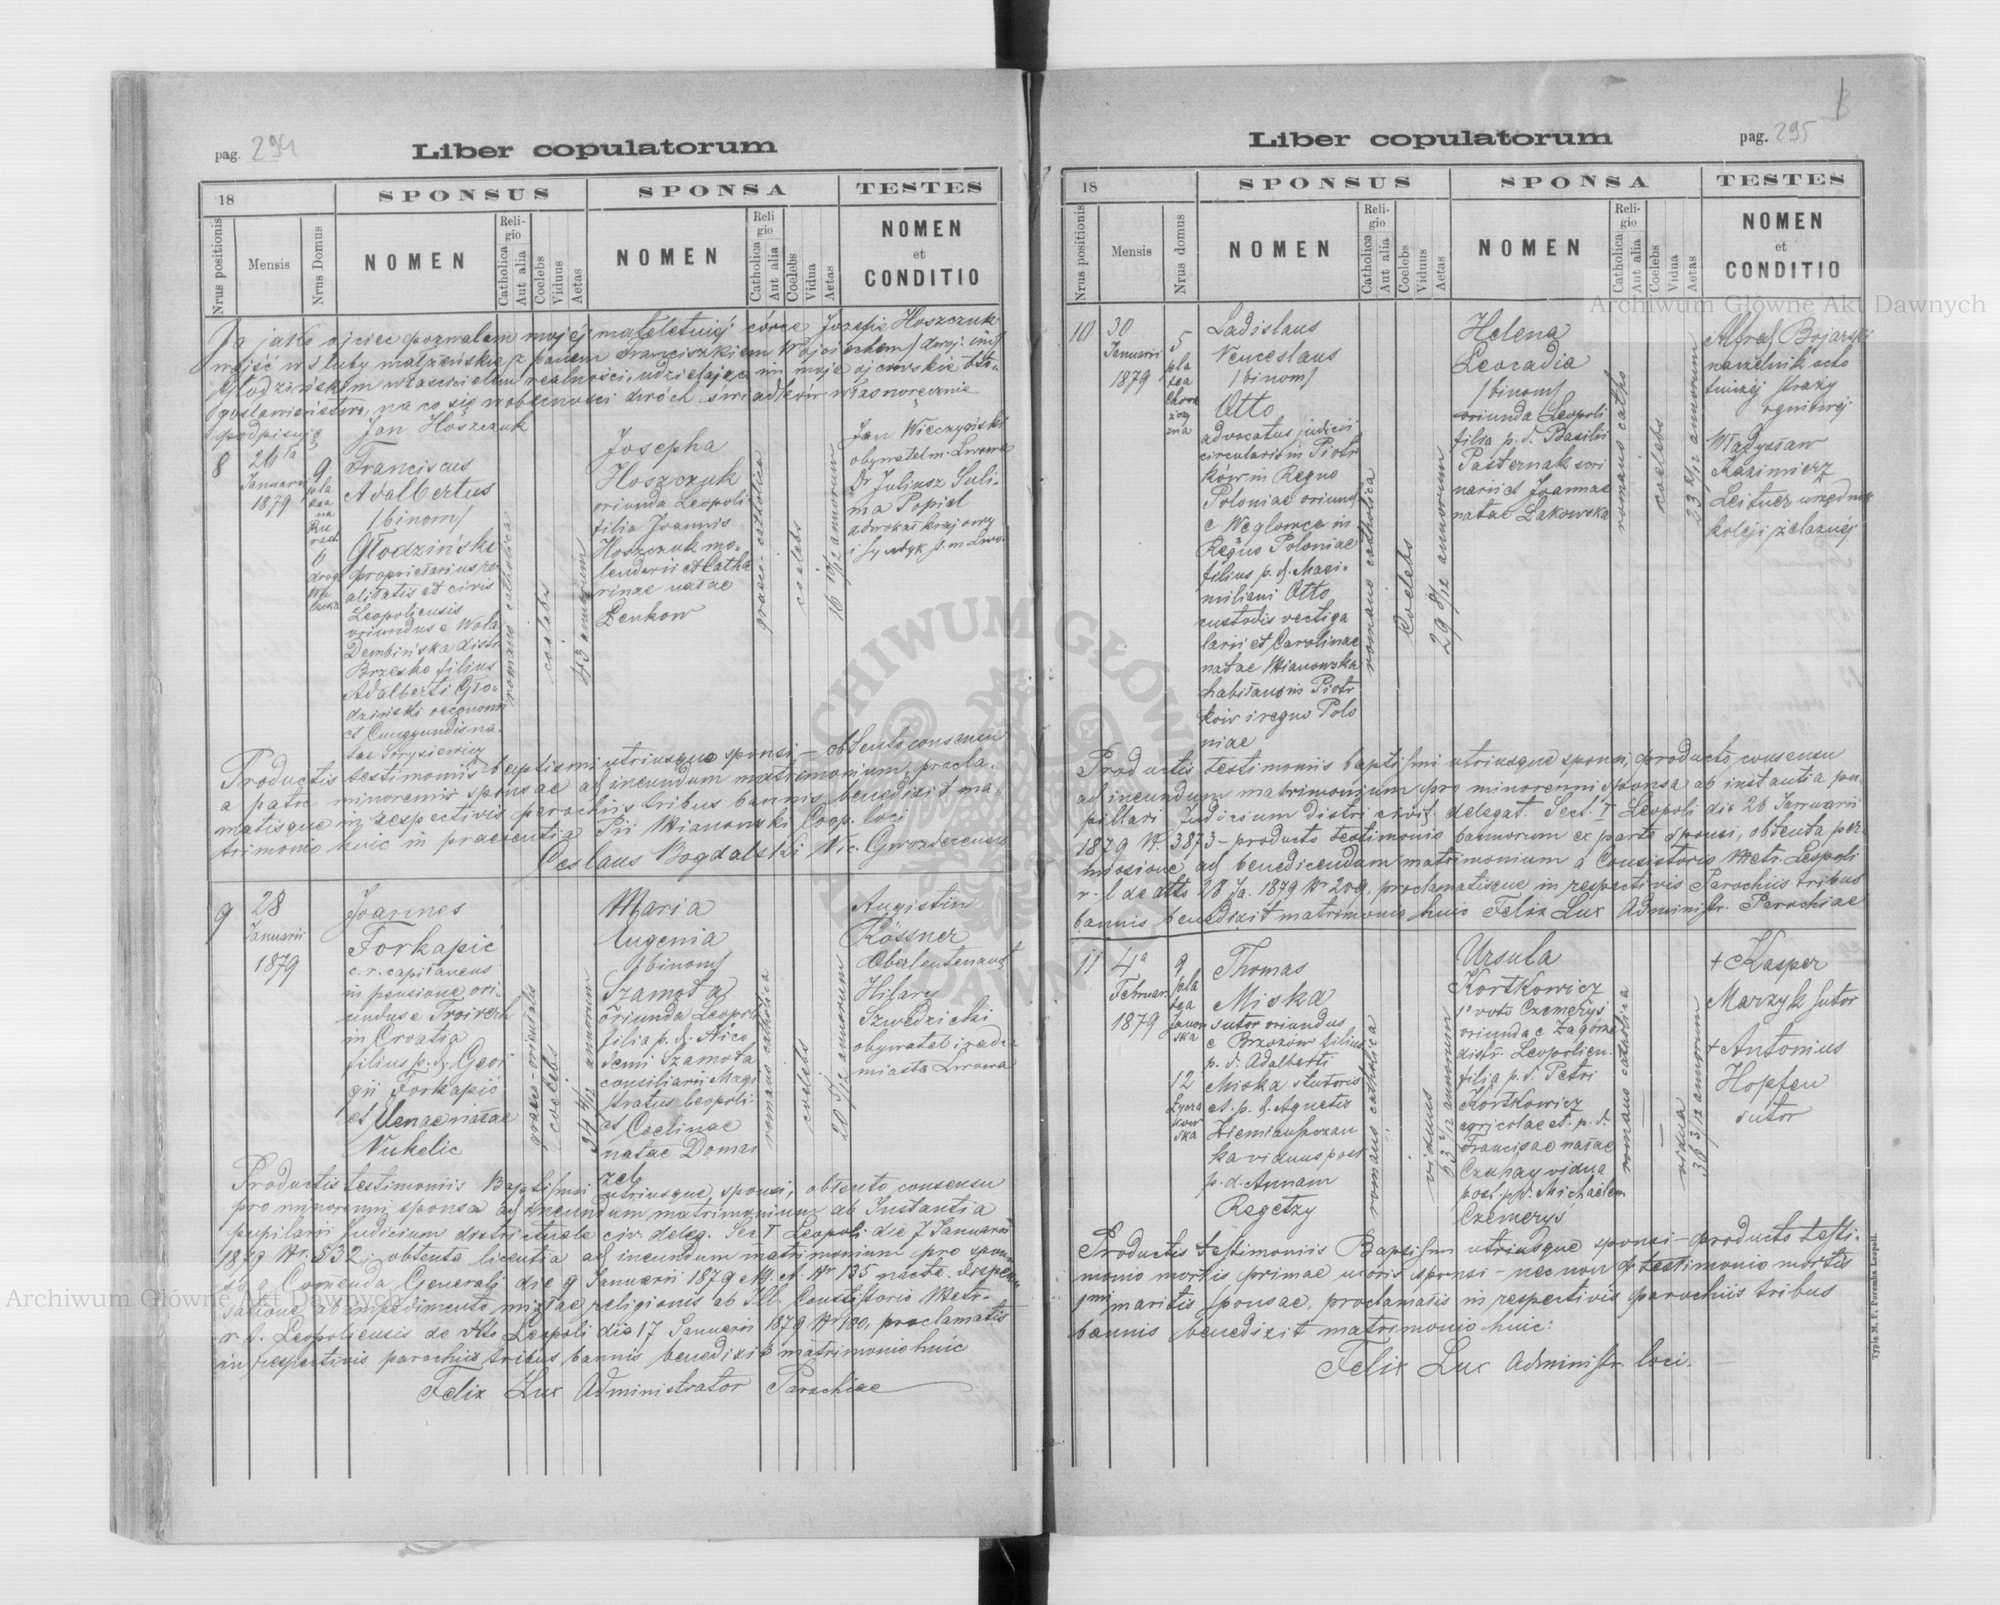 pag. 294
Liber copulatorum
18
SPONSUS
SPONSA
TESTES
Nrus positionis
Mensis
Nrus Domus
NOMEN
Religio
Catholica
Aut alia
Coelebs
Viduus
Aetas
NOMEN
Religio
Catholica
Aut alia
Coelebs
Vidua
Aetas
NOMEN
et
CONDITIO
Ja jako ojciec pozwalam mojej małoletniej córce Jozefie Hoszczuk
wejść w śluby małżeńskie z panem Franciszkiem Wojciechem /dwoj. im/
Głodzińskim właścicielem realności, udzielając im moje ojcowskie bło-
gosławieństwo, na co się w obecności dwóch świadków własnoręcznie
podpisuję
Jan Hoszczuk
8
26ta
Januarii
1879
9
pla
tea
na
6
droga
Franciscus
Adalbertus
/binom/
Głodziński
proprietarius re
alitatis et civis
Leopoliensis
oriundus e Wola
Dembińska distr
Brzesko filius
Adalberti Gło-
dziński oeconomi
et Cunegundis na-
tae
romano catholica
coelebs
43 annorum
Josepha
Hoszczuk
oriunda Leopoli
filia Joannis
Hoszczuk mo-
lendarii et Catha
rinae natae
Łenkow
graeco-catholica
coelebs
annorum
Jan Wieczyński
obywatel m. Lwowa
Dr Juliusz Suli-
ma Popiel
adwokat krajowy
i syndyk st. m. Lwo
Productis testimoniis baptismi utriusque sponsi - obtento consensu
a patre minorennis sponsae ad ineundum matrimonium, procla-
matisque in respectivis parochiis tribus bannis benedixit ma-
trimonio huic in praesentia Pii Mianowski Coop. loci
Ceslaus Bogdalski Vic. Gwozdecensis
9
28
Januarii
1879
Joannes
Forkapić
c. r. capitaneus
in pensione ori-
undus e
in Croatia
filius p. d. Geor
gii Forkapić
et natae
Vukelic
graeco-orientalis
coelebs
annorum
Maria
Eugenia
/binom/
Szamota
oriunda Leopoli
filia p. d. Nico
demi Szamota
consiliarii Magi
stratus Leopoli.
et Coelinae
natae Domai
zel
romano catholica
coelebs
annorum
Augistin
Rössner
Oberleutenant
Hilary
Szwedzicki
obywatel i radca
miasta Lwowa
Productis testimoniis Baptismi utriusque sponsi, obtento consensu
pro minorenni sponsa ad ineundum matrimonium ab Instantia
pupilari Judicium districtuale civ. deleg. Sec I Leopoli die 7 Januarii
1879 Nr. 832, obtenta licentia ad ineundum matrimonium pro spon
so a Comenda Generali die 9 Januarii 1879 M. A. Nr 135 nacta dispen
satione ab impedimento mixtae religionis ab Ill. Consistorio Metr-
r. l. Leopoliensis de dtto Leopoli die 17 Januarii 1879 Nr 100, proclamatis
in respectivis parochiis tribus bannis benedixit matrimonio huic
Felix Lux Administrator Parochiae
pag. 295
Liber copulatorum
18
SPONSUS
SPONSA
TESTES
Nrus positionis
Mensis
Nrus domus
NOMEN
Religio
Catholica
Aut alia
Coelebs
Viduus
Aetas
NOMEN
Religio
Catholica
Aut alia
Coelebs
Vidua
Aetas
NOMEN
et
CONDITIO
10
30
Januarii
1879
5
pla
tea
Chora
zczy
zna
Ladislaus
Venceslaus
/binom/
Otto
advocatus judicii
circularis in Piotr
ków in Regno
Poloniae oriund
e Węglowce in
Regno Poloniae
filius p. d. Maxi-
miliani Otto
custodis vectiga
larii et Carolinae
natae Mianowska
habitans in Piotr
ków i regno Polo
niae
romano catholica
Coelebs
29 annorum
Helena
Leocadia
/binom/
oriunda Leopoli
filia p. d. Basilii
Pasternak
et Joannae
natae Łakowska
romano catho
coelebs
23 annorum
Alfred Bojarski
naczelnik ocho
tniczej straży
ogniowej
Władysław
Kazimierz
Leitner urzędnik
kolei żelaznej
Productis testimoniis baptismi utriusque sponsi, producto consensu
ad ineundum matrimonium pro minorenni sponsa ab instantia pu-
pillari Judicium distri. civit. delegat. Sect. I Leopoli die 26 Januarii
1879 N. 3873 - producto testimonio bannorum ex parte sponsi, obtenta per-
missione ad benedicendum matrimonium a Consistorio Metr. Leopoli
r. l de dtto 28 Ja. 1879 Nr 209, proclamatisque in respectivis Parochiis tribus
bannis benedixit matrimonio huic Felix Lux Administr. Parochiae
11
4a
Februar.
1879
9
pla
tea
Janow
ska
12
Łycza
kow
ska
Thomas
Miska
sutor oriundus
e Brzozów filius
p. d. Adalberti
Miska sutoris
et p. d. Agnetis
viduus post
p. d. Annam
Regetzy
romano catholica
viduus
annorum
Ursula
Kortkowicz
1o voto Czemerys
oriunda e Zagórze
distr. Leopolien.
filia p. d. Petri
Kortkowicz
agricolae et p. d.
Franciscae natae
Czuhay vidua
post p. d. Michaelem
Czemerys
romano catolica
vidua
36 3/12 annorum
+ Kasper
Marzyk sutor
+ Antonius
Hopfen
sutor
Productis testimoniis Baptismi utriusque sponsi - producto testi-
monio mortis primae uxoris sponsi - nec non et testimonio mortis
1mi maritis sponsae, proclamatis in respectivis parochiis tribus
bannis benedixit matrimonio huic:
Felix Lux Administr. loci.
Typis M. F. Poremba Leopoli.
Archiwum Główne Akt Dawnych
Archiwum Główne Akt Dawnych
ARCHIWUM GŁÓWNE AKT DAWNYCH